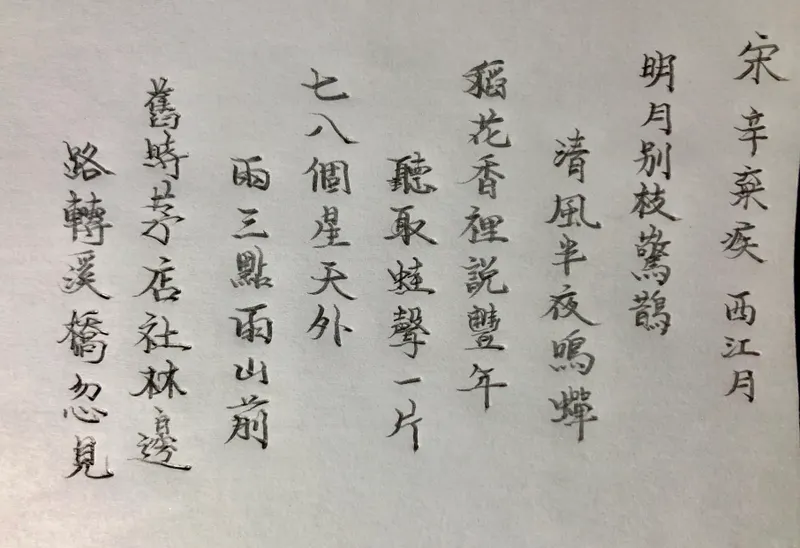 宋 辛棄疾 西江月
明月别枝驚鵲
清風半夜鳴蟬
稻花香裡説豐年
聽取蛙聲一片
七八個星天外
兩三點雨山前
舊時茅店社林邊
路轉溪橋忽見